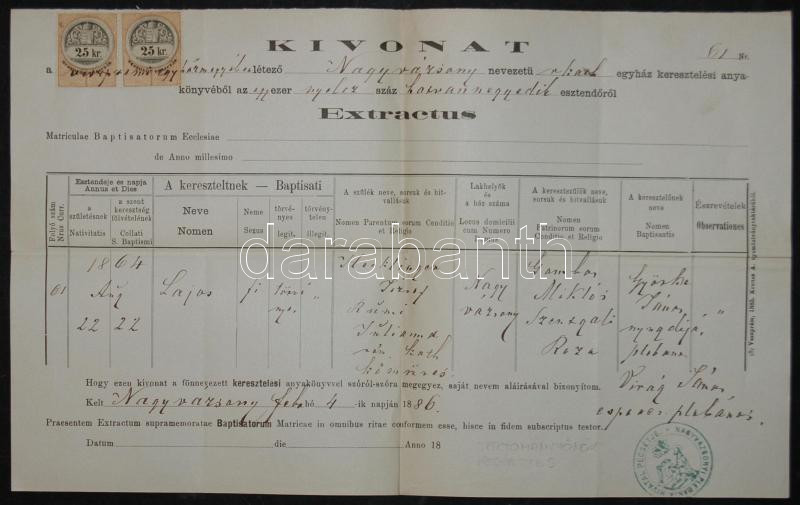 25 kr. 25 kr.
KIVONAT
61 Nr.
a létező Nagyvázsony nevezetü egyház keresztelési anya-
könyvéből az egyezer nyolcz száz hatvannegyedik esztendőről
Extractus
Matriculae Baptisatorum Ecclesiae
de Anno millesimo
Folyó szám
Nrus Curr.
Esztendeje és napja
Annus et Dies
a
születésnek
Nativitatis
a szent
keresztség
fölvételének
Collati
S. Baptismi
A kereszteltnek — Baptisati
Neve
Nomen
Neme
Sexus
törvé-
nyes
legit.
törvény-
telen
illegit.
A szülék neve, sorsuk és hit-
vallásuk
Nomen Parentum sorum Conditio
et Religio
Lakhelyök
és
a ház száma
Locus domicilii
cum Numero
A keresztszülők neve,
sorsuk és hitvallásuk
Nomen
Patrinorum sorum
Conditio et Religio
A keresztelőnek
neve
Nomen
Baptisantis
Észrevételek
Observationes
61
1864
Aug
22 22
Lajos
fi
törvé
nye.
"
József
Julianna
róm. kath
kőmüves
Nagy
vázsony
Gombos
Miklós
Szentgáli
Roza
János
plebános
"
Hogy ezen kivonat a fönnevezett keresztelési anyakönyvvel szóról-szóra megegyez, saját nevem aláirásával bizonyítom.
Virág János
esperes plebános
Kelt Nagyvazsony feb. hó 4 -ik napján 1886.
Praesentem Extractum supramemoratae Baptisatorum Matricae in omnibus ritae conformem esse, hisce in fidem subscriptus testor.
Datum die Anno 18
darabanth